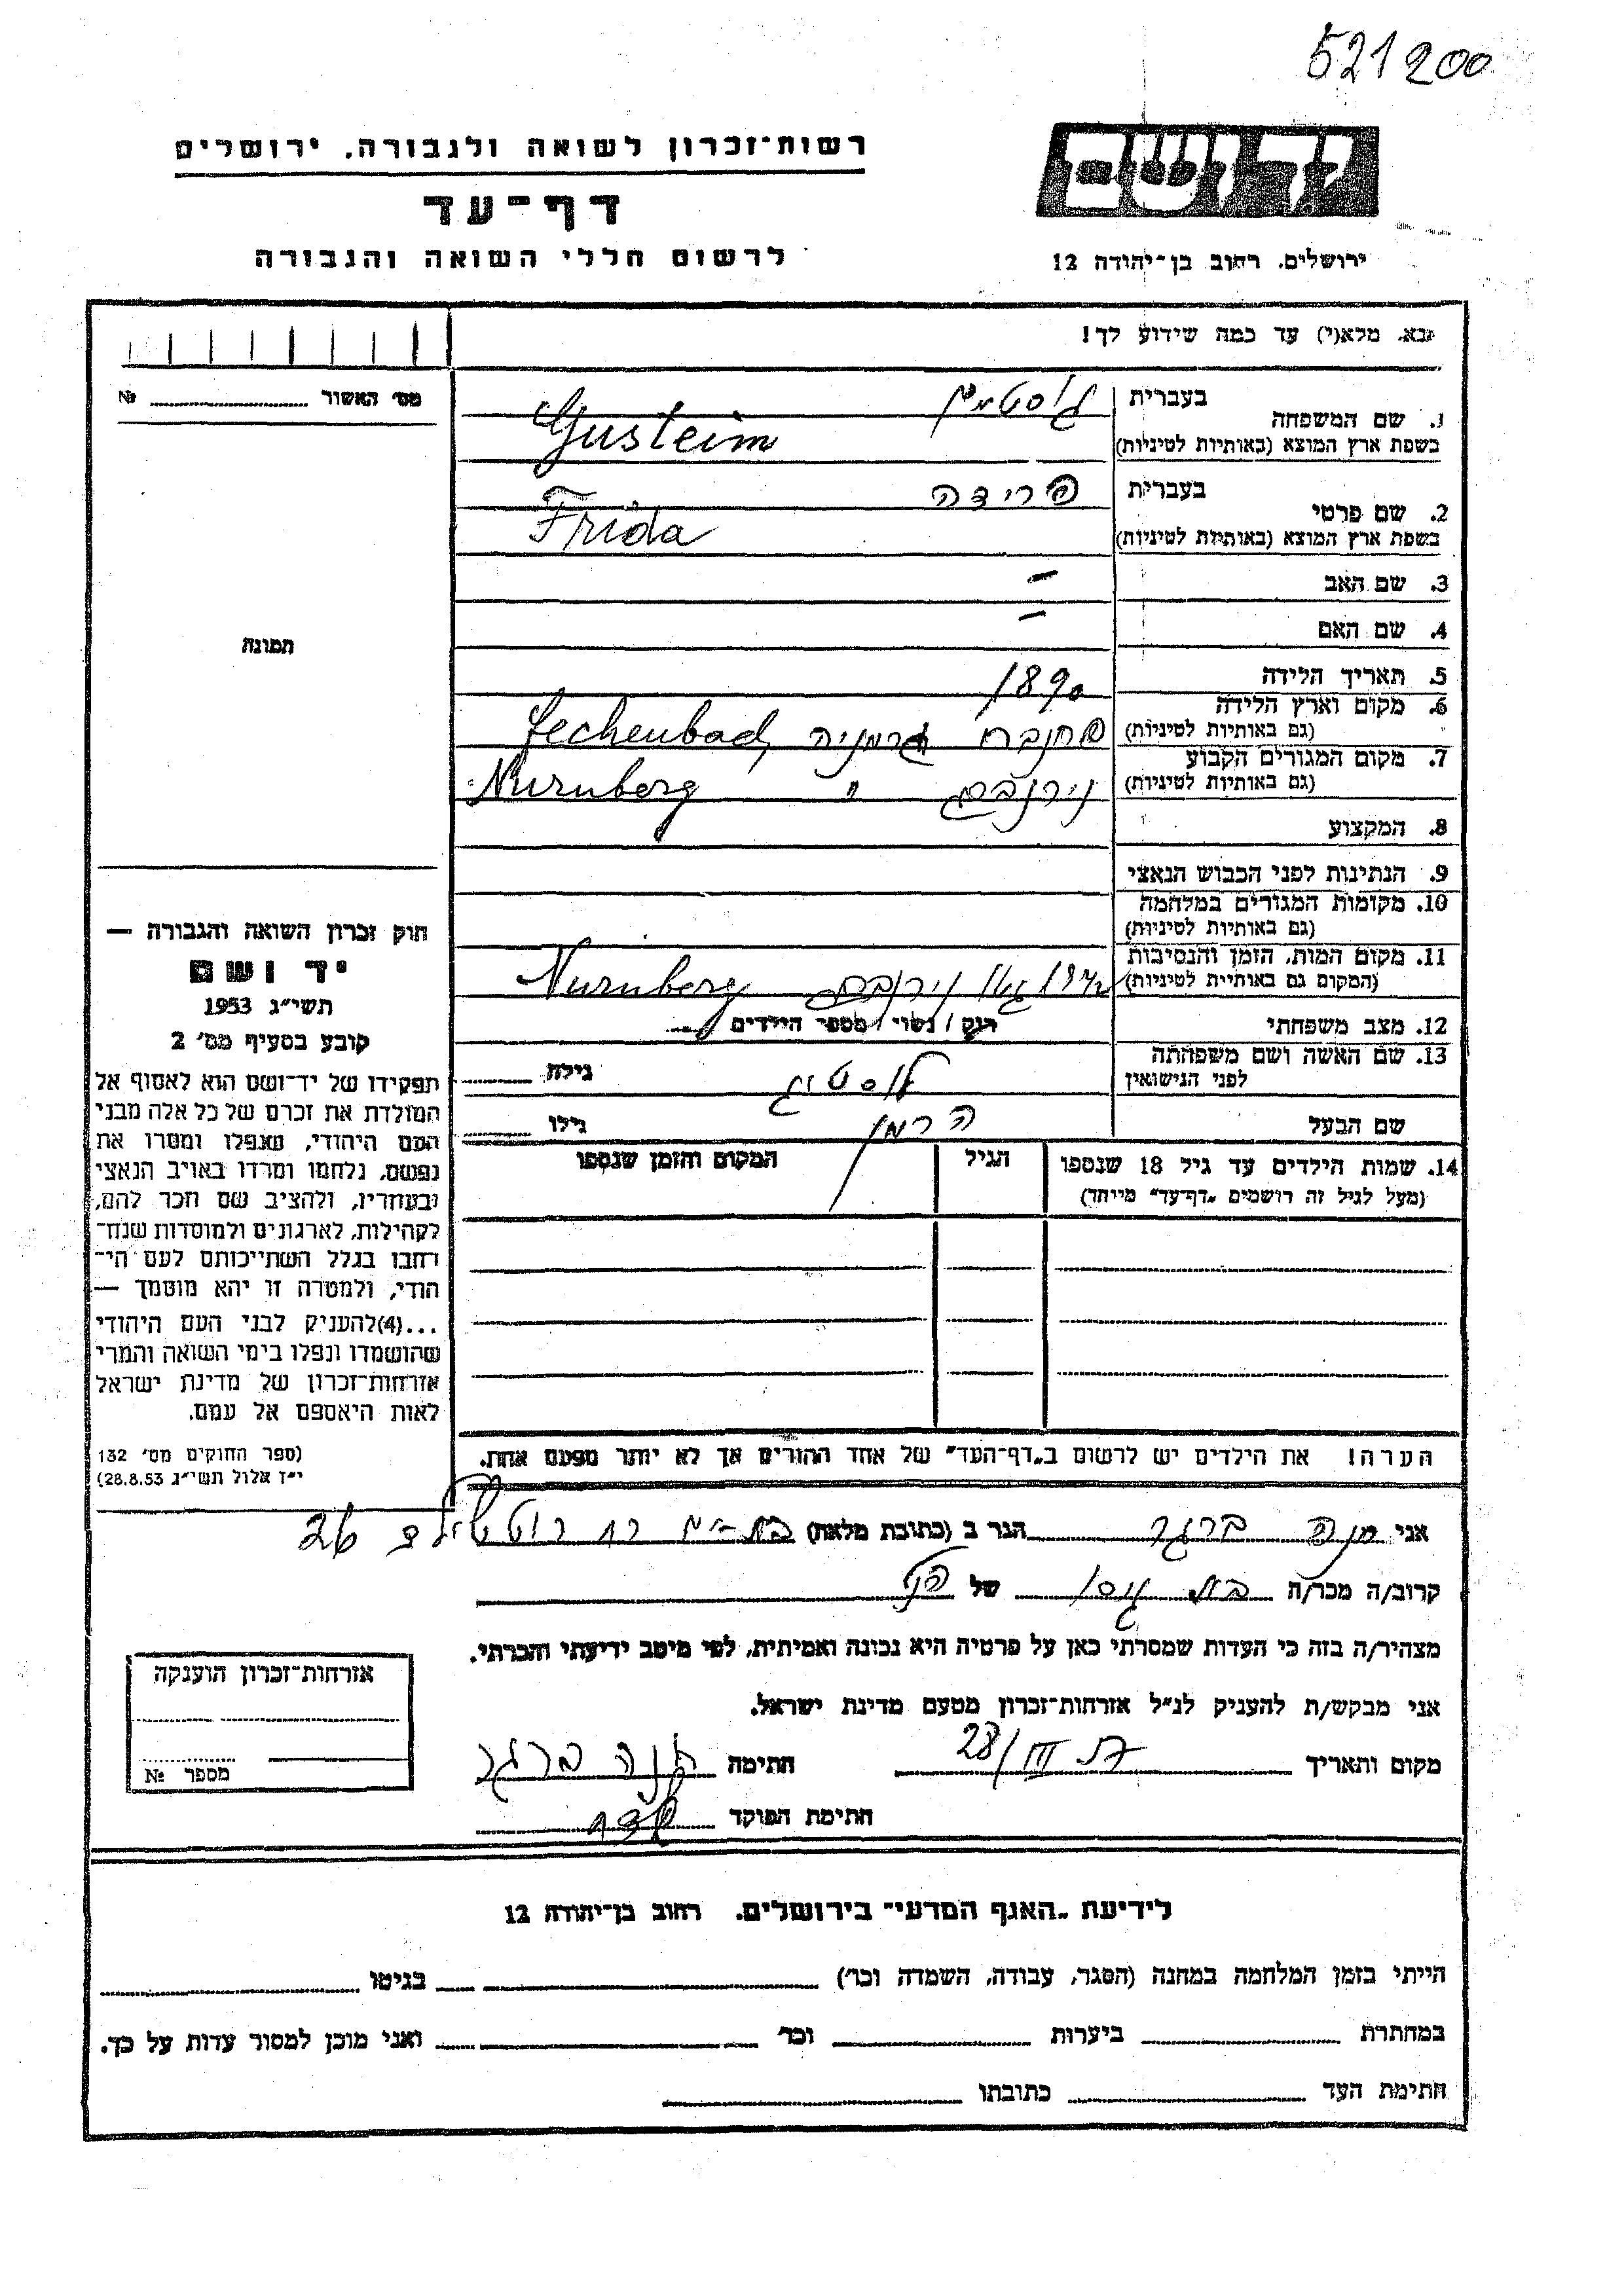 521200
רשות־זכרון לשואה ולגבורה, ירושלים
דף־עד
לרשום חללי השואה והגבורה
יד ושם
ירושלים, רחוב בן־יהודה 12
נא, מלא(י) עד כמה שידוע לך!
מס׳ האשור № 
1. שם המשפחה בעברית
בשפת ארץ המוצא (באותיות לטיניות) Gusteim
2. שם פרטי בעברית פרידה
בשפת ארץ המוצא (באותיות לטיניות) Frida
3. שם האב –
4. שם האם –
5. תאריך הלידה 1890
6. מקום וארץ הלידה
(גם באותיות לטיניות) גרמניה Fechenbad,
7. מקום המגורים הקבוע
(גם באותיות לטיניות) נירנברג " Nurnberg
8. המקצוע
9. הנתינות לפני הכבוש הנאצי
10. מקומות המגורים במלחמה
(גם באותיות לטיניות)
11. מקום המות, הזמן והנסיבות
(המקום גם באותיות לטיניות) נירנברג Nurnberg
12. מצב משפחתי רוק / נשוי / מספר הילדים
13. שם האשה ושם משפחתה
לפני הנישואין לוסטיג גילה
שם הבעל הרמן גילו
14. שמות הילדים עד גיל 18 שנספו
(מעל לגיל זה רושמים „דף־עד״ מיוחד)
הגיל
המקום והזמן שנספו
הערה! את הילדים יש לרשום ב„דף־העד״ של אחד ההורים אך לא יותר מפעם אחת.
תמונה
חוק זכרון השואה והגבורה —
יד ושם
תשי״ג 1953
קובע בסעיף מס׳ 2
תפקידו של יד־ושם הוא לאסוף אל
המולדת את זכרם של כל אלה מבני
העם היהודי, שנפלו ומסרו את
נפשם, נלחמו ומרדו באויב הנאצי
ובעוזריו, ולהציב שם וזכר להם,
לקהילות, לארגונים ולמוסדות שנח־
רבו בגלל השתייכותם לעם הי־
הודי, ולמטרה זו יהא מוסמך —
...(4)להעניק לבני העם היהודי
שהושמדו ונפלו בימי השואה והמרי
אזרחות־זכרון של מדינת ישראל
לאות היאספם אל עמם.
(ספר החוקים מס׳ 132
י״ז אלול תשי״ג 28.8.53)
אני חנה ברגר הגר ב (כתובת מלאה) בת־ים רח רוטשילד 26
קרוב/ה מכר/ה בת של
מצהיר/ה בזה כי העדות שמסרתי כאן על פרטיה היא נכונה ואמיתית, לפי מיטב ידיעתי והכרתי.
אני מבקש/ת להעניק לנ״ל אזרחות־זכרון מטעם מדינת ישראל.
מקום ותאריך 28/III חתימה חנה ברגר
חתימת הפוקד
אזרחות־זכרון הוענקה
מספר №
לידיעת „האגף המדעי״ בירושלים, רחוב בן־יהודה 12
הייתי בזמן המלחמה במחנה (הסגר, עבודה, השמדה וכו׳) בגיטו
במחתרת ביערות וכו׳ ואני מוכן למסור עדות על כך.
חתימת העד כתובתו